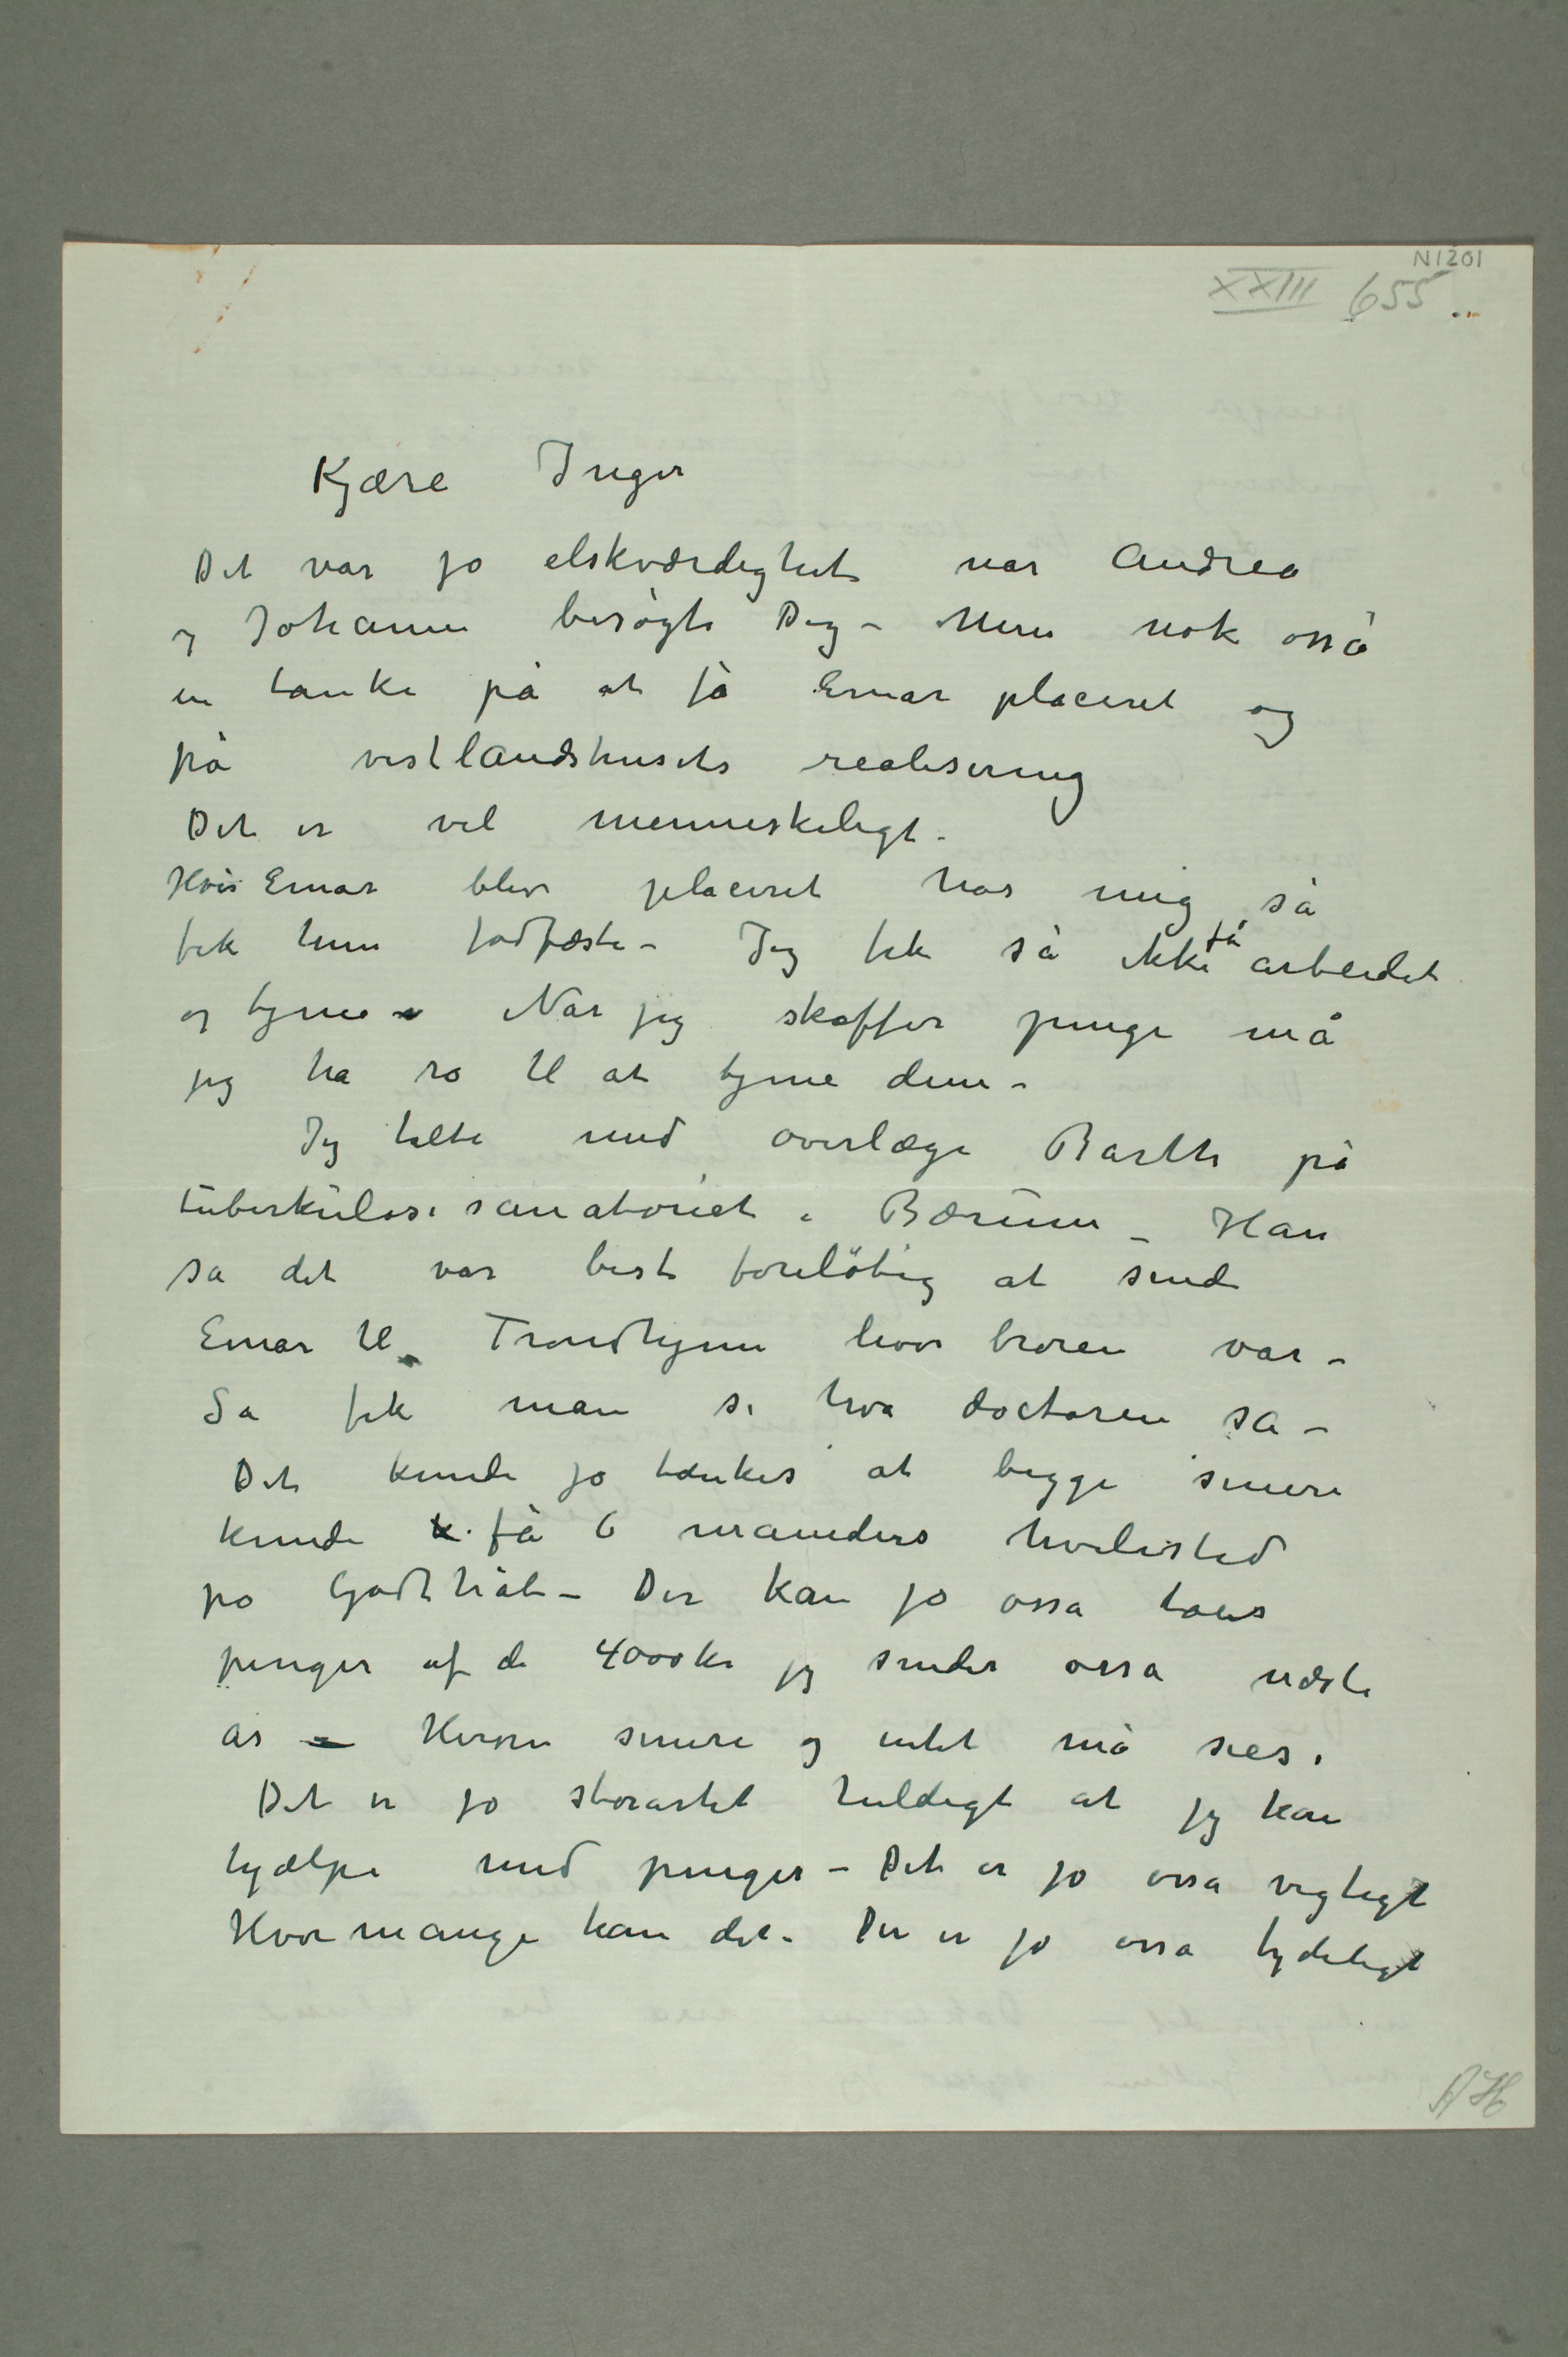 N1201
XXIII 655
Kjære Inger
Det var jo elskværdighet nar Andrea
og Johanne besøgte Dig – Men nok osså
en tanke på at få Einar placeret og
på vestlandshusets realisering
Det er vel menneskeligt –
Hvis Einar blev placeret hos mig så
fik hun fodfæste – Jeg fik så ikke få arbeidet
og tjene – Når jeg skaffer penge må
jeg ha ro til at tjene dem –
Jeg talte med overlæge Barth på
tuberkulosesanatoriet i Bærum – Han
sa det var best foreløbig at sende
Einar til Trondhjem hvor broren var –
Så fik man se hva doctoren sa –
Det kunde jo tænkes at begge senere
kunde få 6 maaneders hvilested
på Godthåb – Der kan jo osså taes
penger af de 4000 kr jeg sender osså næste
år – Herom senere og intet må sies.
Det er jo storartet heldigt at jeg kan
hjælpe med penger – Det er jo osså vigtigt
Hvor mange kan det – Der er jo osså tydeligt
AH